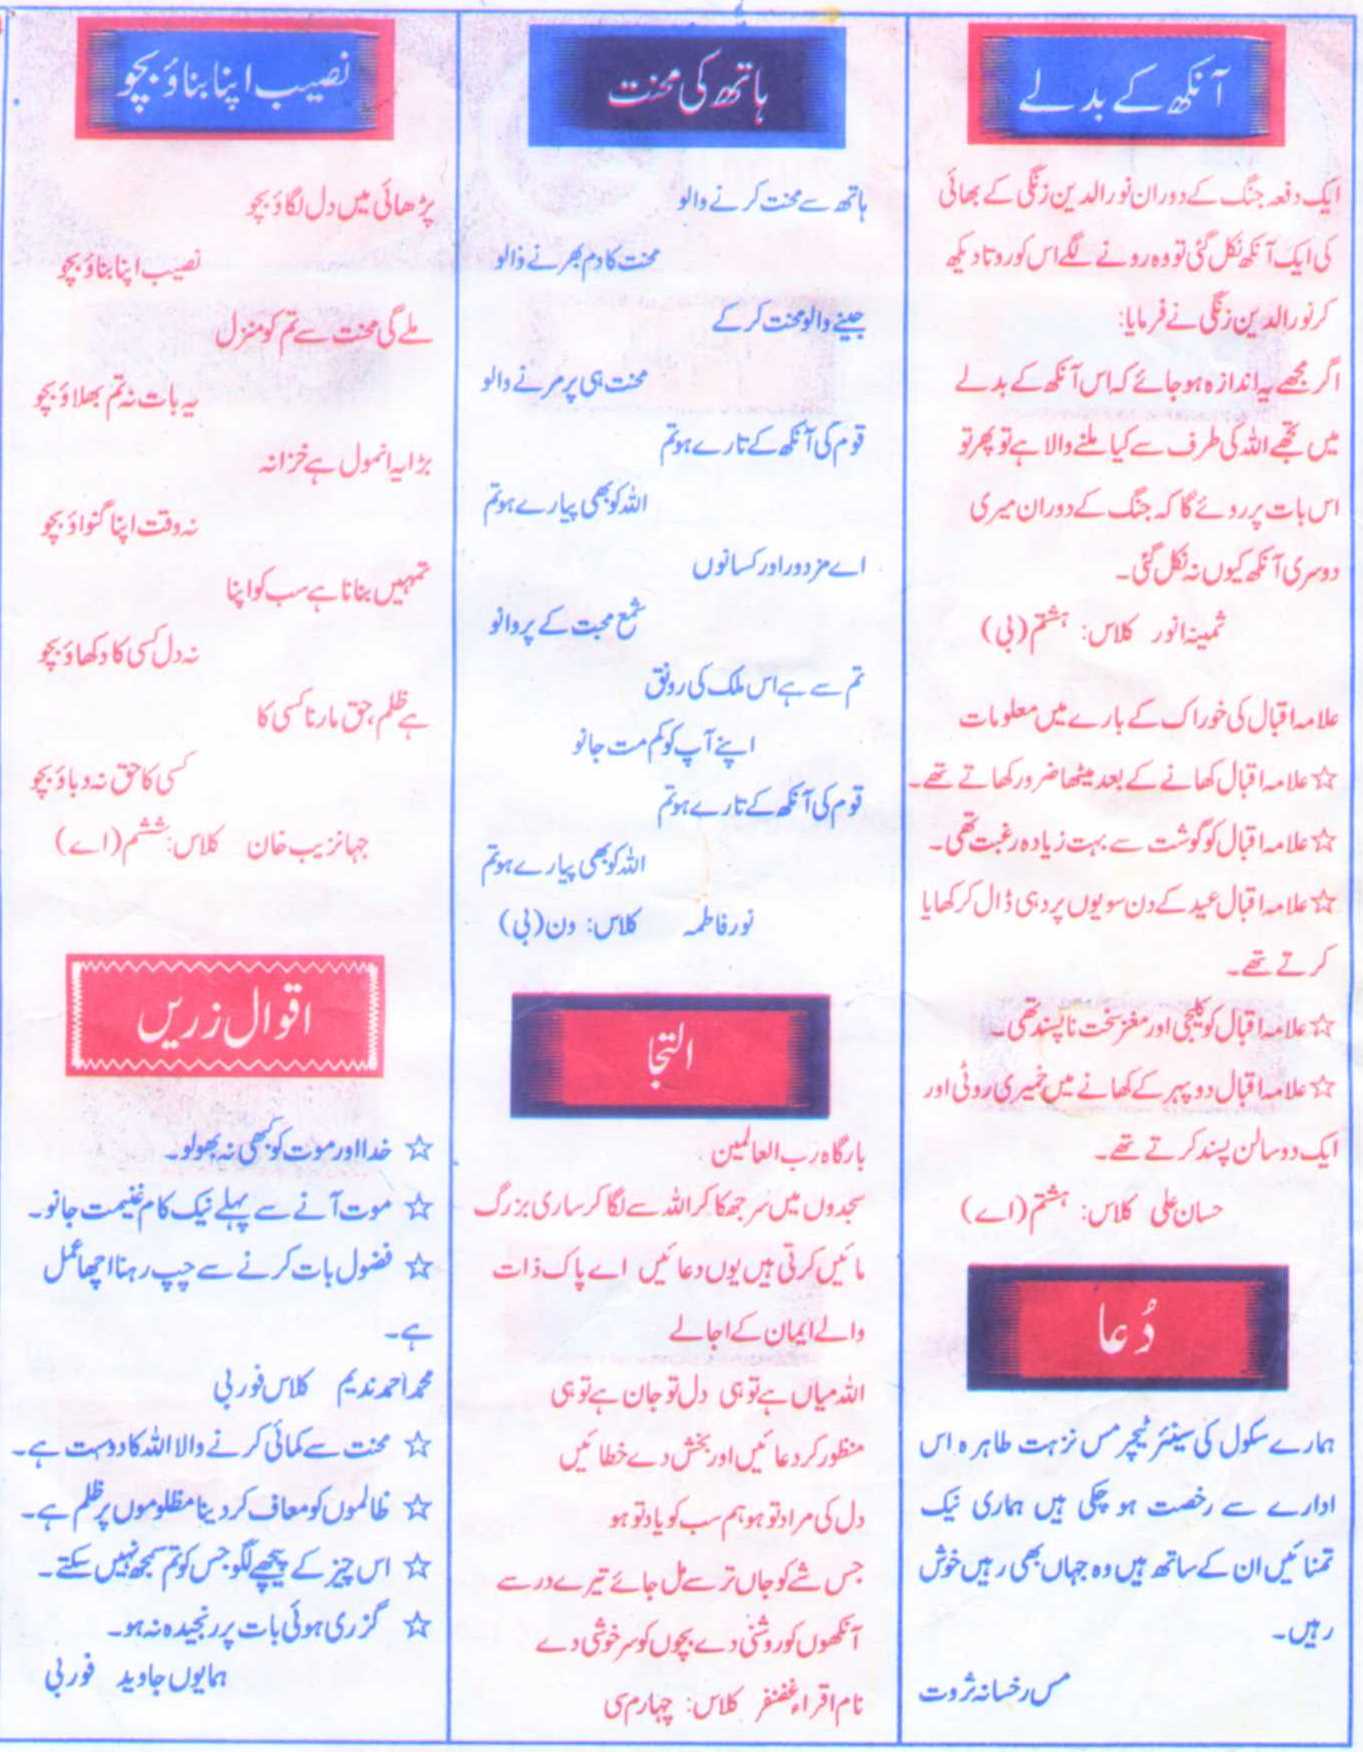 آنکھ کے بدلے
ایک دفعہ جنگ کے دوران نورالدین زنگی کے بھائی
کی ایک آنکھ نکل گئی تو وہ رونے لگے اس کو روتا دیکھ
کر نورالدین زنگی نے فرمایا:
اگر مجھے یہ اندازہ ہو جائے کہ اس آنکھ کے بدلے
میں تجھے اللہ کی طرف سے کیا ملنے والا ہے تو پھر تو
اس بات پر روئے گا کہ جنگ کے دوران میری
دوسری آنکھ کیوں نہ نکل گئی۔
ثمینہ انور کلاس: ہشتم (بی)
علامہ اقبال کی خوراک کے بارے میں معلومات
☆ علامہ اقبال کھانے کے بعد میٹھا ضرور کھاتے تھے۔
☆ علامہ اقبال کو گوشت سے بہت زیادہ رغبت تھی۔
☆ علامہ اقبال عید کے دن سویوں پر دہی ڈال کر کھایا
کرتے تھے۔
☆ علامہ اقبال کو کلیجی اور مغز سخت نا پسند تھی۔
☆ علامہ اقبال دوپہر کے کھانے میں خمیری روٹی اور
ایک دو سالن پسند کرتے تھے۔
حسان علی کلاس: ہشتم (اے)
دُعا
ہمارے سکول کی سینئر ٹیچر مس نزہت طاہرہ اس
ادارے سے رخصت ہو چکی ہیں ہماری نیک
تمنائیں ان کے ساتھ ہیں وہ جہاں بھی رہیں خوش
رہیں۔
مس رخسانہ ثروت
ہاتھ کی محنت
ہاتھ سے محنت کرنے والو
محنت کا دم بھرنے والو
جینے والو محنت کر کے
محنت ہی پر مرنے والو
قوم کی آنکھ کے تارے ہو تم
اللہ کو بھی پیارے ہو تم
اے مزدور اور کسانوں
شمع محبت کے پروانو
تم سے ہے اس ملک کی رونق
اپنے آپ کو کم مت جانو
قوم کی آنکھ کے تارے ہو تم
اللہ کو بھی پیارے ہو تم
نور فاطمہ کلاس: ون (بی)
التجا
بارگاہ رب العالمین
سجدوں میں سر جھکا کر اللہ سے لگا کر ساری بزرگ
مائیں کرتی ہیں یوں دعائیں اے پاک ذات
والے ایمان کے اجالے
اللہ میاں ہے تو ہی دل تو جان ہے تو ہی
منظور کر دعائیں اور بخش دے خطائیں
دل کی مراد تو ہو ہم سب کو یاد تو ہو
جس شے کو جاں ترسے مل جائے تیرے در سے
آنکھوں کو روشنی دے بچوں کو سر خوشی دے
نام اقراء غضنفر کلاس: چہارم سی
نصیب اپنا بناؤ بچو
پڑھائی میں دل لگاؤ بچو
نصیب اپنا بناؤ بچو
ملے گی محنت سے تم کو منزل
یہ بات نہ تم بھلاؤ بچو
بڑا یہ انمول ہے خزانہ
نہ وقت اپنا گنواؤ بچو
تمہیں بنانا ہے سب کو اپنا
نہ دل کسی کا دکھاؤ بچو
ہے ظلم، حق مارنا کسی کا
کسی کا حق نہ دباؤ بچو
جہانزیب خان کلاس: ششم (اے)
اقوال زریں
☆ خدا اور موت کو کبھی نہ بھولو۔
☆ موت آنے سے پہلے نیک کام غنیمت جانو۔
☆ فضول بات کرنے سے چپ رہنا اچھا عمل
ہے۔
محمد احمد ندیم کلاس فور بی
☆ محنت سے کمائی کرنے والا اللہ کا دوست ہے۔
☆ ظالموں کو معاف کر دینا مظلوموں پر ظلم ہے۔
☆ اس چیز کے پیچھے لگو جس کو تم سمجھ نہیں سکتے۔
☆ گزری ہوئی بات پر رنجیدہ نہ ہو۔
ہمایوں جاوید فور بی